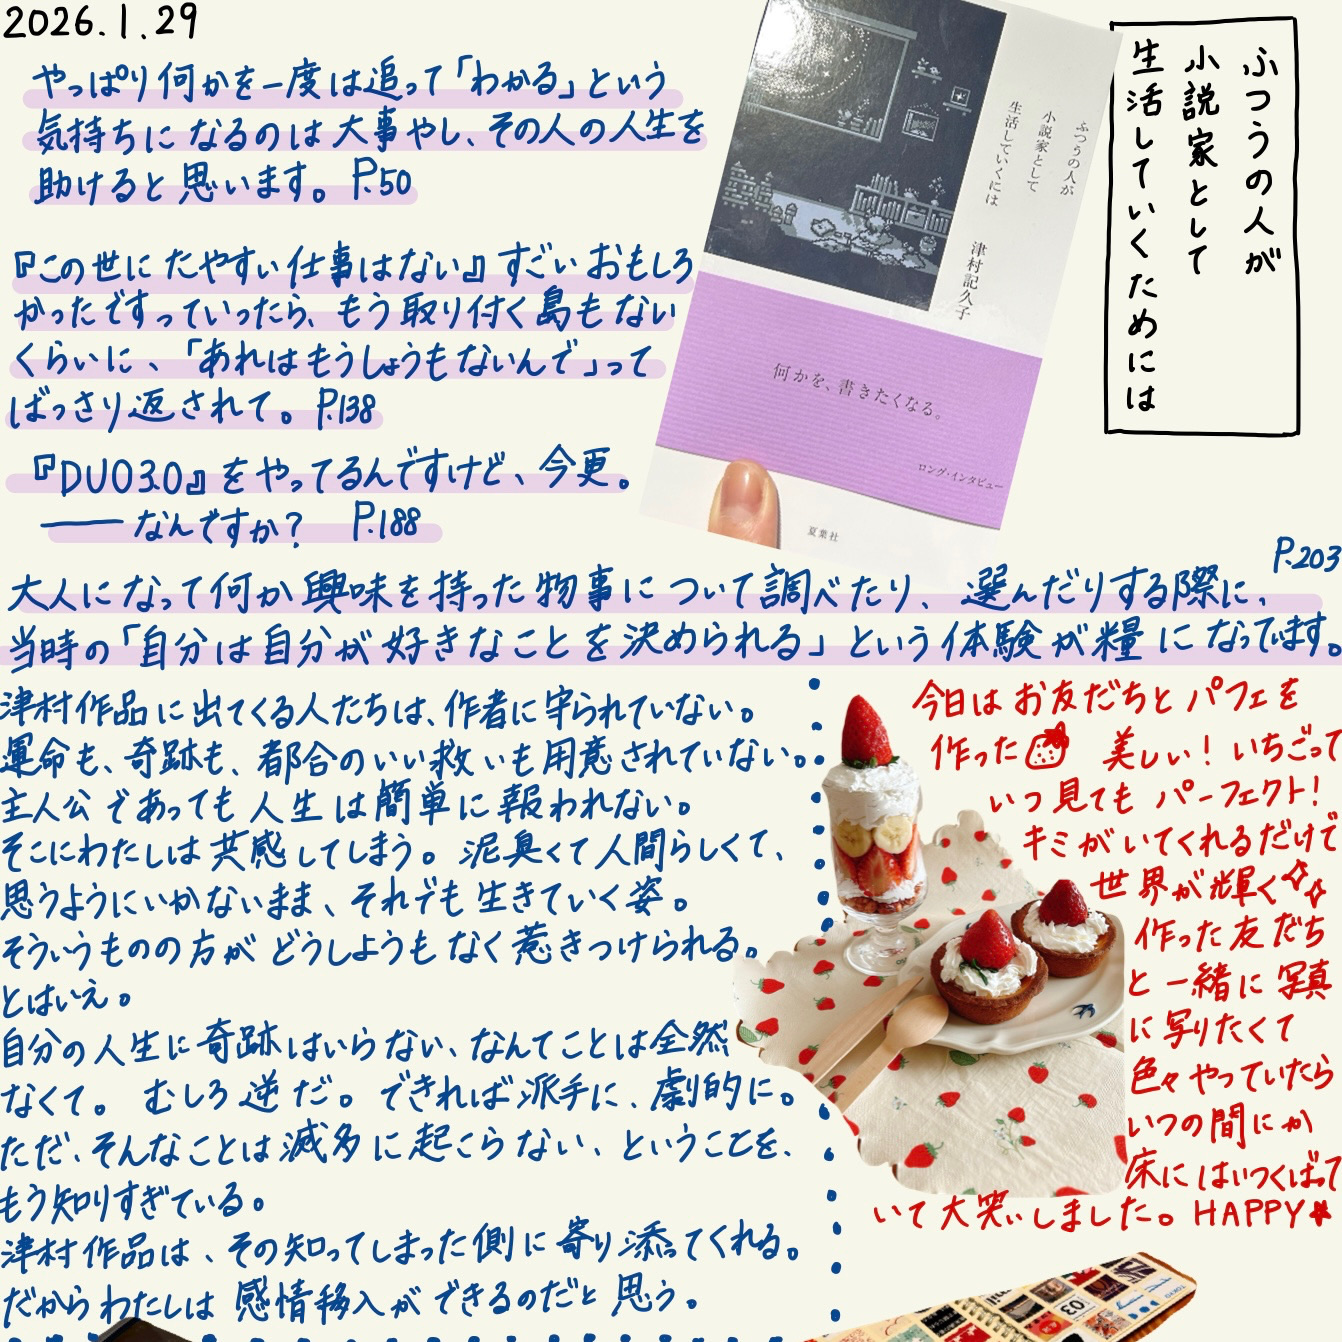 2026.1.29
やっぱり何かを一度は追って「わかる」という
気持ちになるのは大事やし、その人の人生を
助けると思います。P.50
『この世にたやすい仕事はない』すごいおもしろ
かったですっていったら、もう取り付く島もない
くらいに、「あれはもうしょうもないんで」って
ばっさり返されて。P.138
『DUO3.0』をやってるんですけど、今更。
――なんですか? P.188
ふつうの人が
小説家として
生活していくには
津村記久子
何かを、書きたくなる。
ロング・インタビュー
夏葉社
ふつうの人が
小説家として
生活していくためには
P.203
大人になって何か興味を持った物事について調べたり、選んだりする際に、
当時の「自分は自分が好きなことを決められる」という体験が糧になっています。
津村作品に出てくる人たちは、作者に守られていない。
運命も、奇跡も、都合のいい救いも用意されていない。
主人公であっても人生は簡単に報われない。
そこにわたしは共感してしまう。泥臭くて人間らしくて、
思うようにいかないまま、それでも生きていく姿。
そういうものの方がどうしようもなく惹きつけられる。
とはいえ。
自分の人生に奇跡はいらない、なんてことは全然
なくて。むしろ逆だ。できれば派手に、劇的に。
ただ、そんなことは滅多に起こらない、ということを、
もう知りすぎている。
津村作品は、その知ってしまった側に寄り添ってくれる。
だからわたしは感情移入ができるのだと思う。
今日はお友だちとパフェを
作った 美しい!いちごって
いつ見てもパーフェクト!
キミがいてくれるだけで
世界が輝く
作った友だち
と一緒に写真
に写りたくて
色々やっていたら
いつの間にか
床にはいつくばって
いて大笑いしました。HAPPY
TOKYO
03